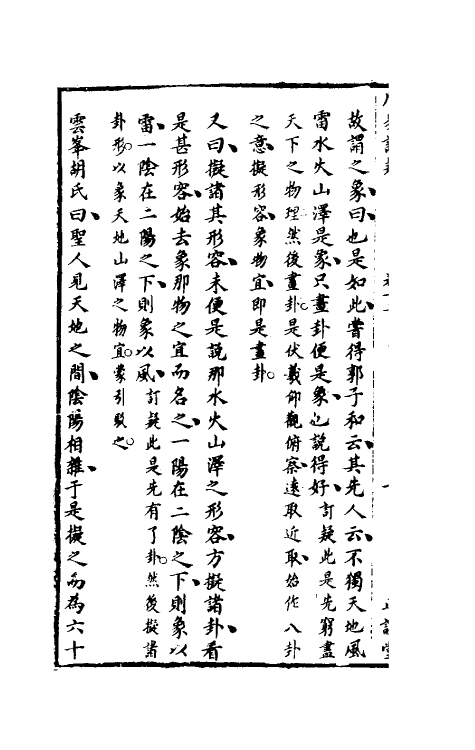 故謂之象曰也是如此嘗得郭子和云其先人云不獨天地風
雷水火山澤是象只畫卦便是象也說得好訂疑此是先窮盡
天下之物理然後畫卦是伏羲仰觀俯察遠取近取始作八卦
之意擬形容象物宜即是畫卦
又曰擬諸其形容未便是說那水火山澤之形容方擬諸卦看
是甚形容始去象那物之宜而名之一陽在二陰之下則象以
雷一陰在二陽之下則象以風訂疑此是先有了卦然後擬諸
卦形以象天地山澤之物宜蒙引駁之
雲峯胡氏曰聖人見天地之間陰陽相雜于是擬之而為六十